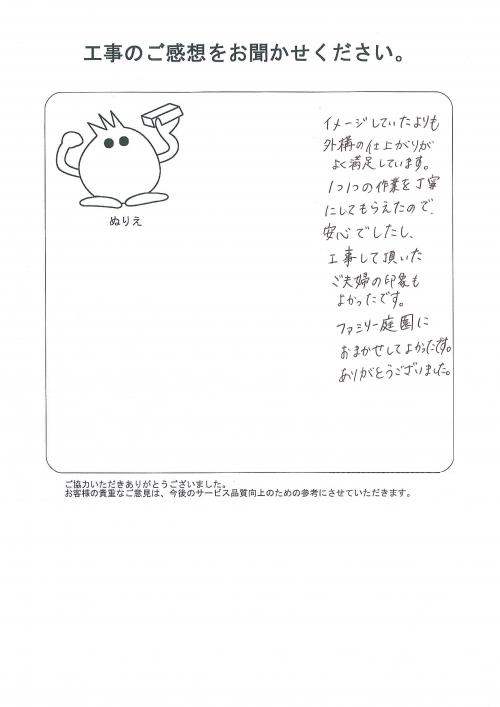 工事のご感想をお聞かせください。
ぬりえ
イメージしていたよりも
外構の仕上がりが
よく満足しています。
1つ1つの作業を丁寧
にしてもらえたので、
安心でしたし、
工事して頂いた
ご夫婦の印象も
よかったです。
ファミリー庭園に
おまかせしてよかったです。
ありがとうございました。
ご協力いただきありがとうございました。
お客様の貴重なご意見は、今後のサービス品質向上のための参考にさせていただきます。